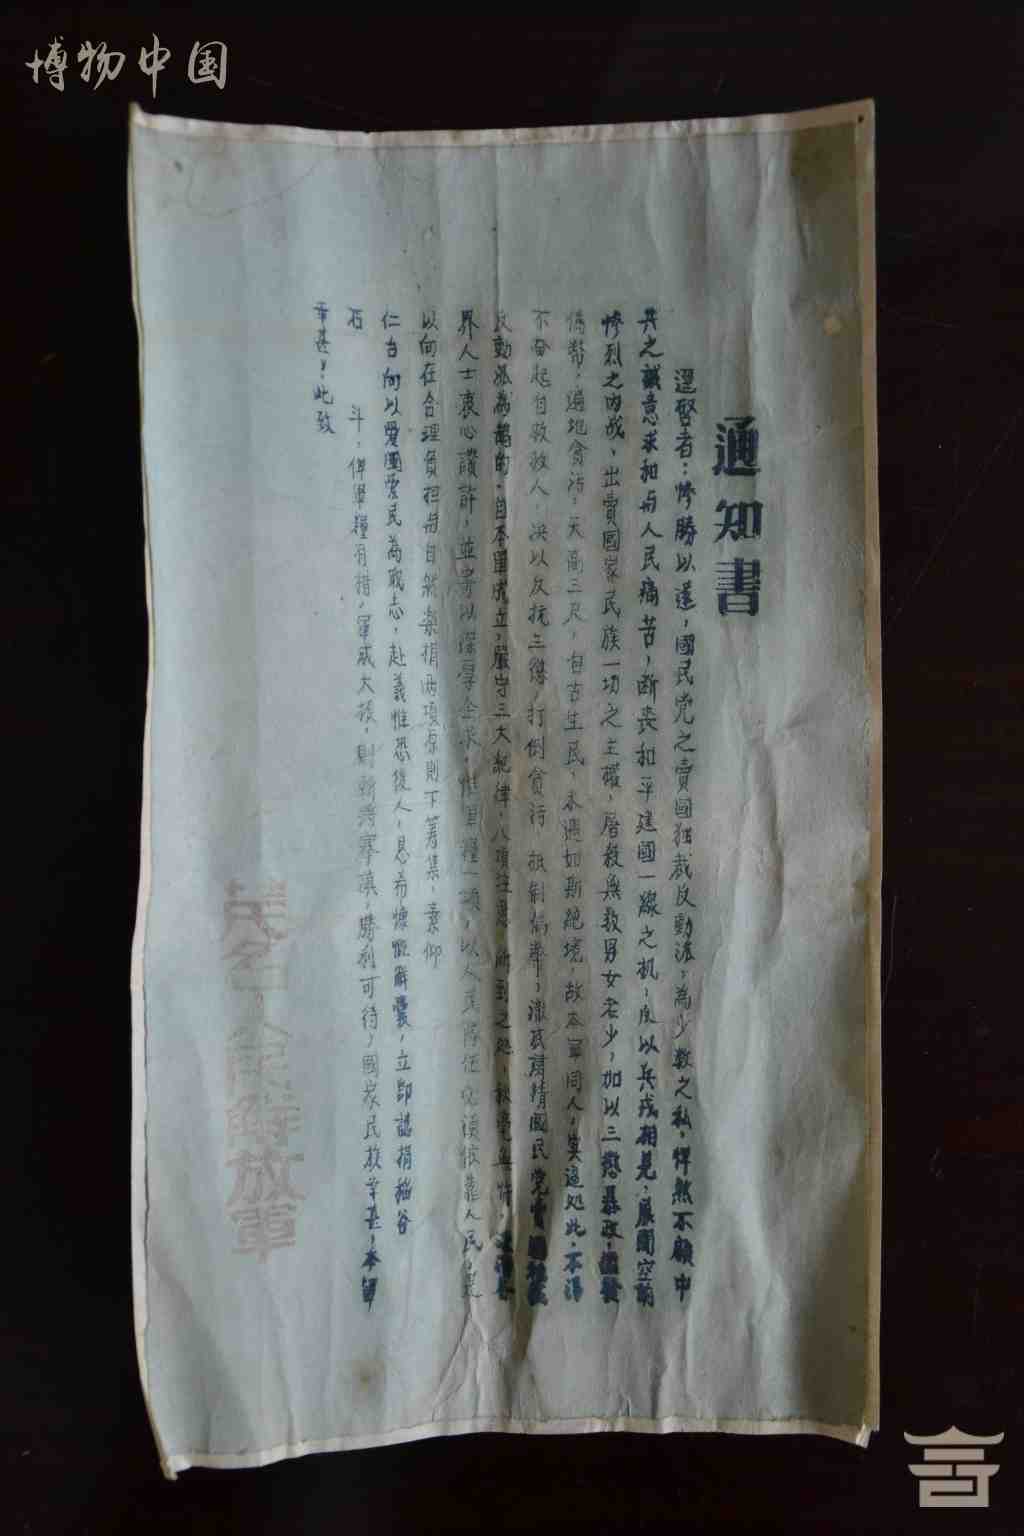 博物中国
通知書
逕啓者：慘勝以還，國民党之賣國独裁反動派，為少数之私，悍然不顧中
共之誠意求和与人民痛苦，断丧和平建國一線之机，反以兵戎相見，展開空前
惨烈之内战，出賣國家民族一切之主权，屠殺無数男女老少，加以三徵暴政，濫發
偽幣，遍地貪污，天高三尺，自古生民，未遇如斯絶境，故本軍同人，奠過処此，不得
不奋起自救救人，决以反抗三徵，打倒貪污，抵制偽幣，澈底肅清國民党賣國独裁
反動派為鵠的，自本團成立，嚴守三大紀律，八項注意，所到之処，秋毫無犯，
界人士衷心讚許，並寄以深厚企求，惟軍糧一項，以人民隊伍必須依靠人民，是
以向在合理負担与自願樂捐兩項原則下筹集，素仰
仁台向以愛國愛民為職志，赴義惟恐後人，恳希慷慨解囊，立即認捐稻谷
石 斗，俾軍糧有措，軍威大振，則 勝利可待，國家民族幸甚，本部
幸甚！此致
解放軍